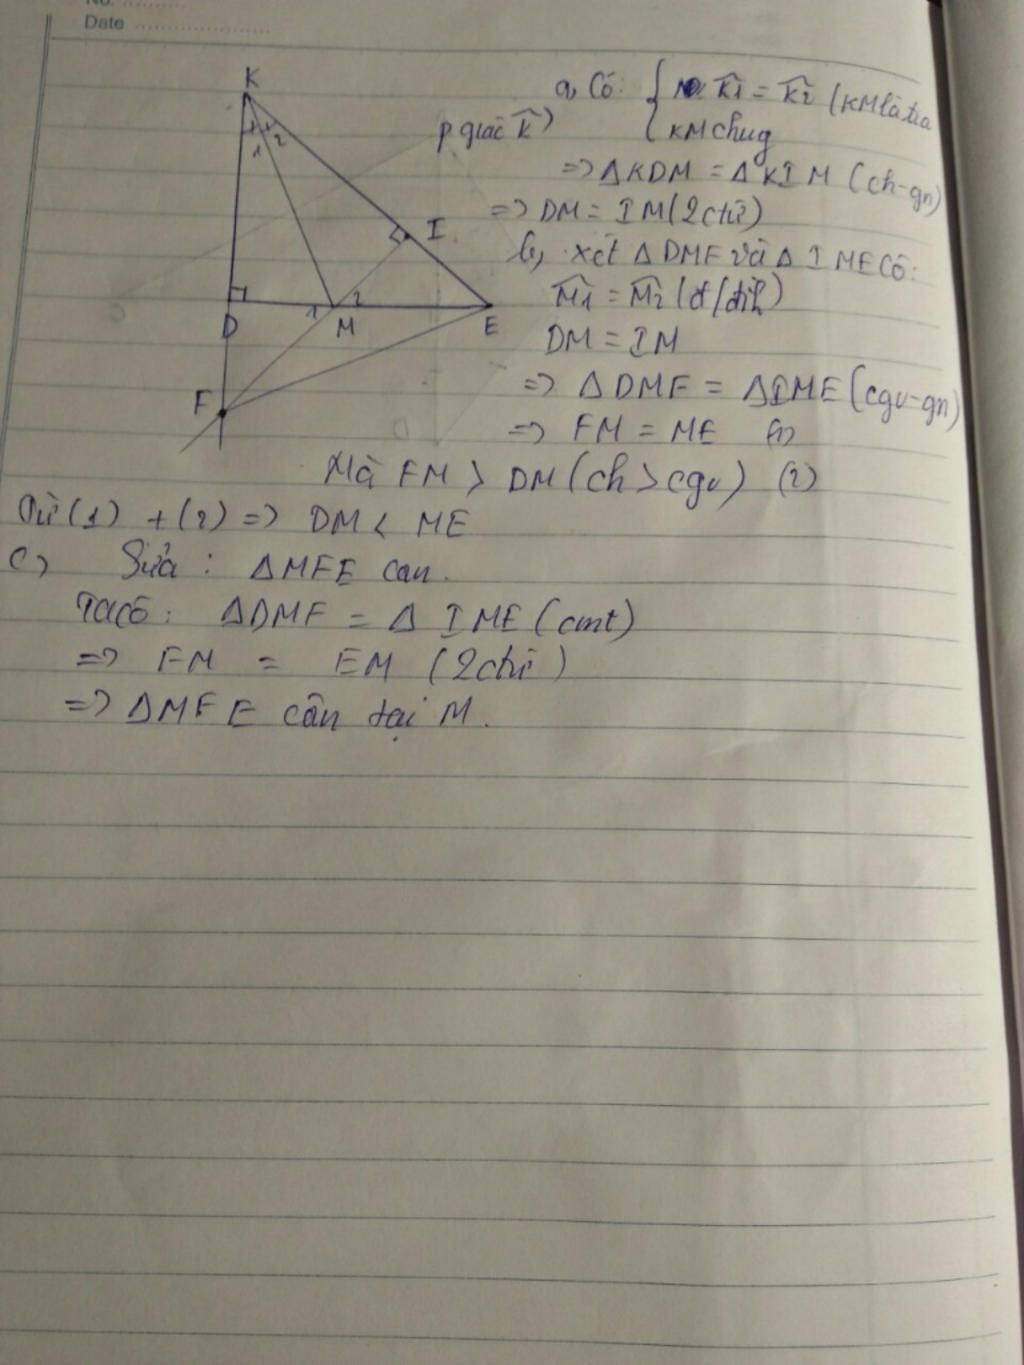 No. ..........
Date ......................
K
1 2
I
D 1 M 2 E
F
a, Có: { K̂1 = K̂2 (KM là tia
p giác K̂)
{ KM chug
=> ΔKDM = ΔKIM (ch-gn)
=> DM = IM (2ctư)
b, xét ΔDMF và ΔIME Có:
M̂1 = M̂2 (đ/đỉh)
DM = IM
=> ΔDMF = ΔIME (cgv-gn)
=> FM = ME (1)
Mà FM > DM (ch > cgv) (2)
Từ (1) + (2) => DM < ME
c) Sửa: ΔMFE can.
Ta có: ΔDMF = ΔIME (cmt)
=> FM = EM (2ctư)
=> ΔMFE cân tại M.